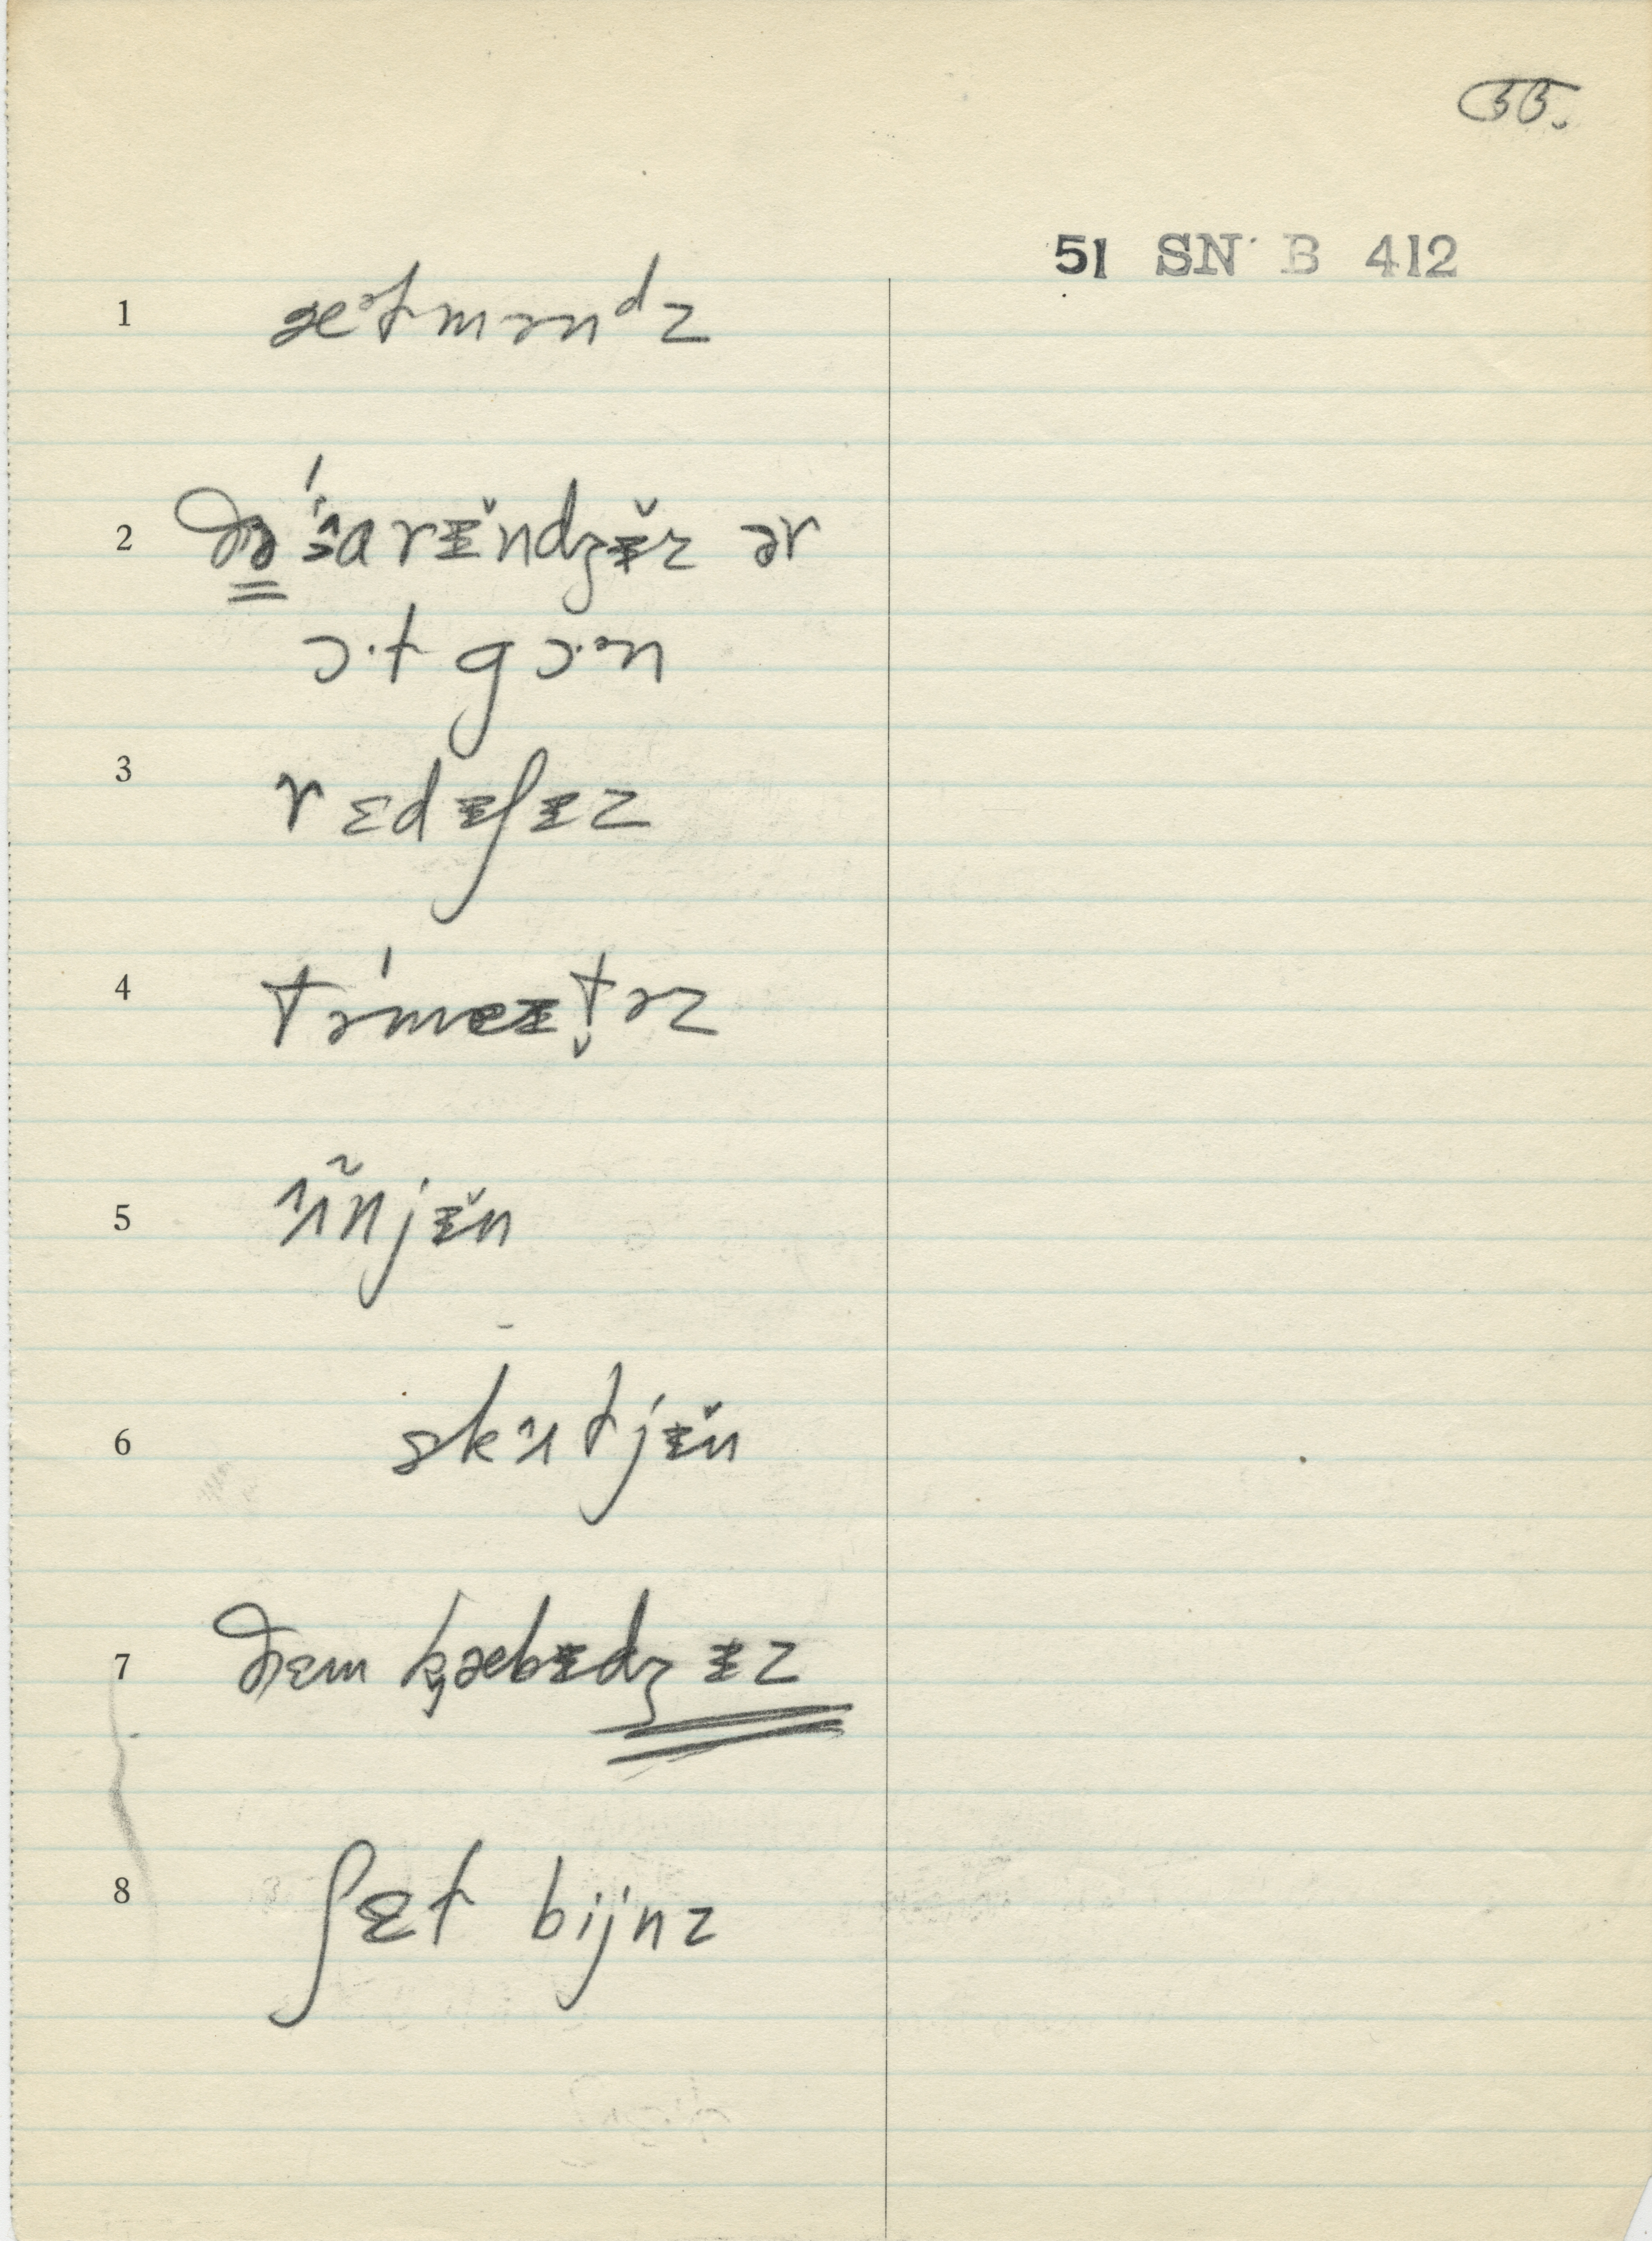 55.
51 SN B 412
1 æᵊtmənᵈz
2 ðə ɑrɪ̵̆ndʒɪ̵̆z ər
ɔ·t gɔ·ᵊn
3 rɛdɪ̵ʃɪ̵z
4 təmeɪ̵t̬əz
5 ʌ̃njɪ̵̆n
6 skʌtjɪ̵̆n
7 ðɛm kæbɪ̵dʒɪ̵z
8 ʃɛt bijnz